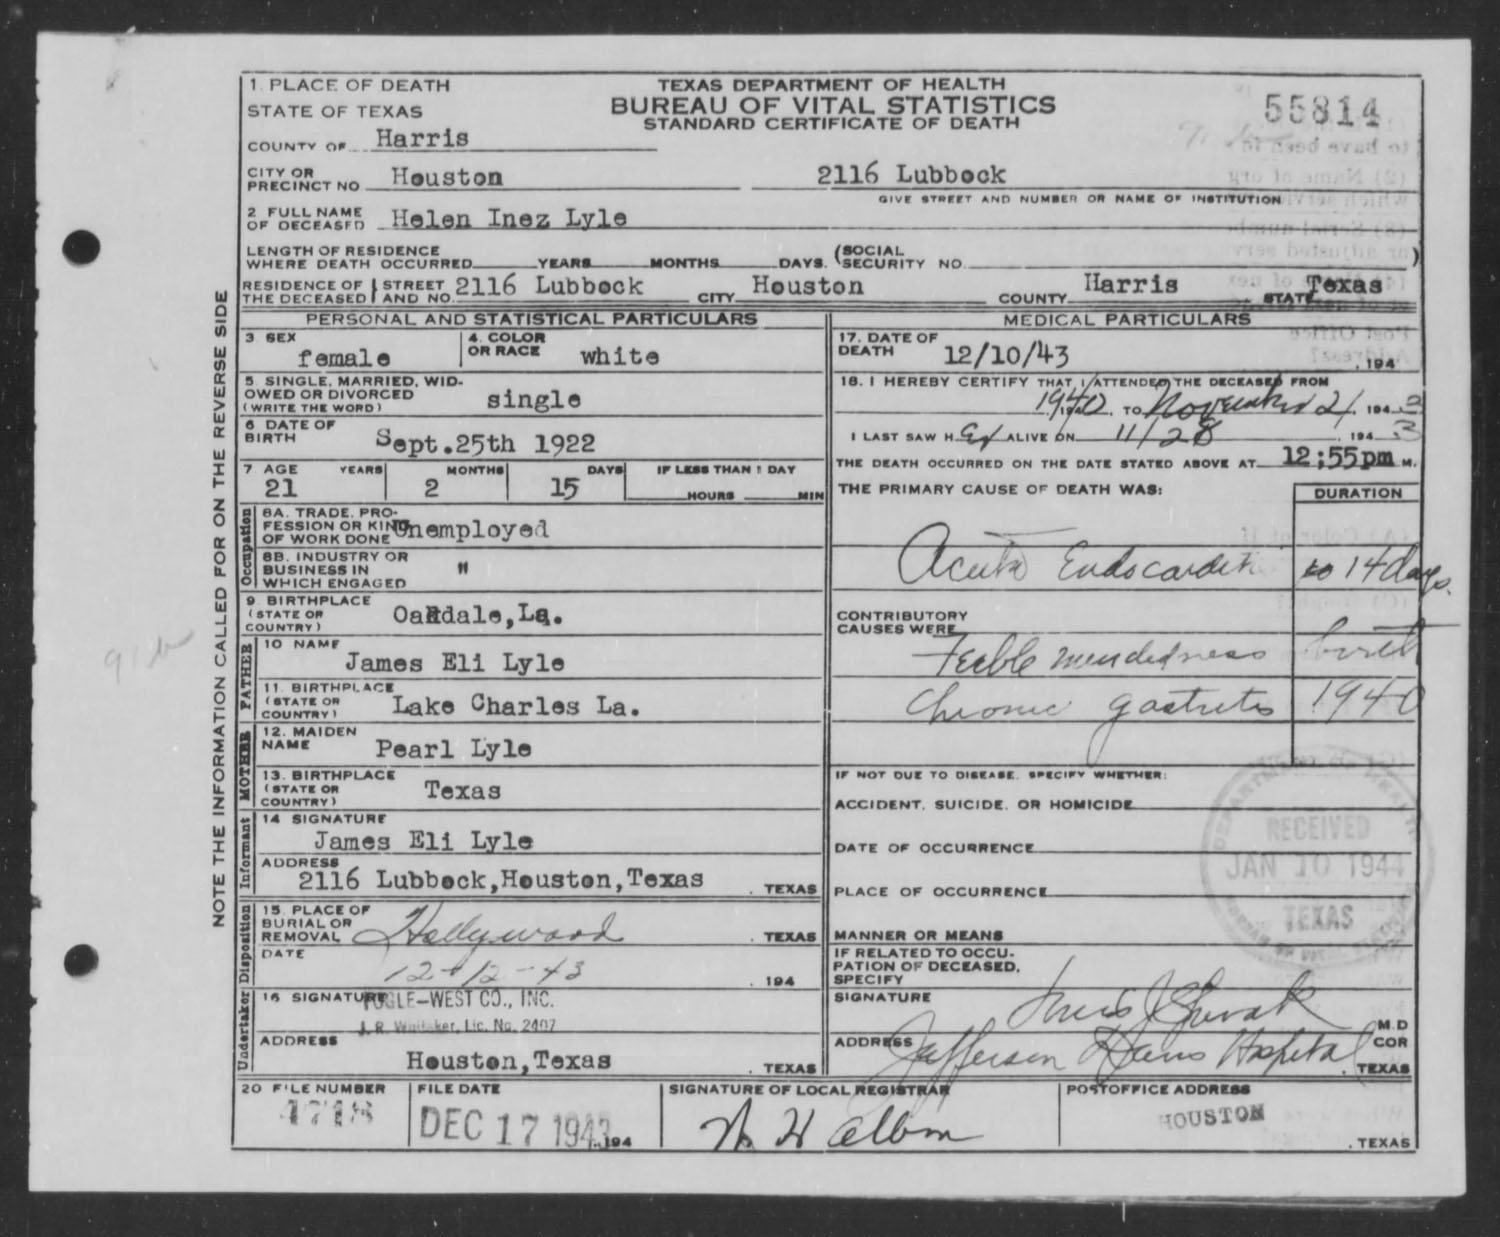 1. PLACE OF DEATH
STATE OF TEXAS
COUNTY OF Harris
TEXAS DEPARTMENT OF HEALTH
BUREAU OF VITAL STATISTICS
STANDARD CERTIFICATE OF DEATH
55814
CITY OR PRECINCT NO. Houston 2116 Lubbock
GIVE STREET AND NUMBER OR NAME OF INSTITUTION
2 FULL NAME OF DECEASED Helen Inez Lyle
LENGTH OF RESIDENCE WHERE DEATH OCCURRED YEARS MONTHS DAYS. (SOCIAL SECURITY NO. )
RESIDENCE OF THE DECEASED STREET AND NO. 2116 Lubbock CITY Houston COUNTY Harris STATE Texas
NOTE THE INFORMATION CALLED FOR ON THE REVERSE SIDE
PERSONAL AND STATISTICAL PARTICULARS
3 SEX female
4. COLOR OR RACE white
5 SINGLE, MARRIED, WIDOWED OR DIVORCED (WRITE THE WORD) single
6 DATE OF BIRTH Sept.25th 1922
7 AGE YEARS MONTHS DAYS IF LESS THAN 1 DAY
21 2 15 HOURS MIN
Occupation
8A. TRADE, PROFESSION OR KIND OF WORK DONE Unemployed
8B. INDUSTRY OR BUSINESS IN WHICH ENGAGED "
9 BIRTHPLACE (STATE OR COUNTRY) Oakdale,La.
FATHER
10 NAME James Eli Lyle
11. BIRTHPLACE (STATE OR COUNTRY) Lake Charles La.
MOTHER
12. MAIDEN NAME Pearl Lyle
13. BIRTHPLACE (STATE OR COUNTRY) Texas
Informant
14 SIGNATURE James Eli Lyle
ADDRESS 2116 Lubbock,Houston,Texas . TEXAS
Disposition
15. PLACE OF BURIAL OR REMOVAL Hollywood . TEXAS
DATE 12-12-43 . 194
Undertaker
16 SIGNATURE FOGLE-WEST CO., INC.
J. R. Whitaker, Lic. No. 2407
ADDRESS Houston,Texas . TEXAS
MEDICAL PARTICULARS
17. DATE OF DEATH 12/10/43 . 194
18. I HEREBY CERTIFY THAT I ATTENDED THE DECEASED FROM
1940 194 TO November 21, 194 3
I LAST SAW HER ALIVE ON 11/28 , 194 3
THE DEATH OCCURRED ON THE DATE STATED ABOVE AT 12;55pm M.
THE PRIMARY CAUSE OF DEATH WAS: DURATION
Acute Endocarditis 14 days.
CONTRIBUTORY CAUSES WERE
Feeble mindedness birth
Chronic gastritis 1940
IF NOT DUE TO DISEASE, SPECIFY WHETHER:
ACCIDENT, SUICIDE, OR HOMICIDE
DATE OF OCCURRENCE
PLACE OF OCCURRENCE
MANNER OR MEANS
IF RELATED TO OCCUPATION OF DECEASED, SPECIFY
RECEIVED
JAN 10 1944
TEXAS
SIGNATURE M.D
ADDRESS Jefferson Davis Hospital COR . TEXAS
20 FILE NUMBER 4718
FILE DATE DEC 17 1943 194
SIGNATURE OF LOCAL REGISTRAR
POSTOFFICE ADDRESS HOUSTON . TEXAS